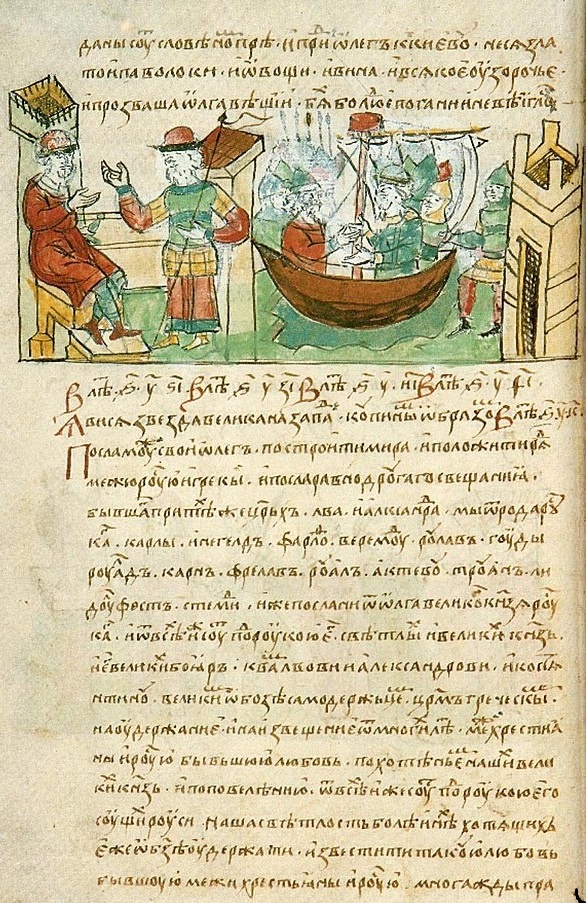 даны сѹⷮ словѣноⷨ прѣ · и прїиⷣ ѡлегъ к киевѹ · неся зла
то и паволоки · и ѡвощи · и вина · и всякое ѹзорочье ·
и прозваша ѡлга вѣщїи · бяⷯ бо люⷣе погани и невѣигло
В лѣⷮ · ҂ѕ · у · ѕі · В лѣⷮ · ҂ѕ · у · зі · В лѣⷮ · ҂ѕ · у · иі · В лѣⷮ · ҂ѕ · у · ѳі ·
Явися звезда велика на запаⷣ · копииныⷨ ѡбразоⷨ · В лѣⷮ · ҂ѕ · у · к ·
Посла мѹⷤ свои ѡлегъ · построити мира · и положити ряⷣ
межю рѹⷭю и грекы · и посла равно дрѹгаго свещания ·
бывшаⷢ при тѣⷯже цр҃ьхъ · лва · и алеѯанⷣра · мы ѿ рода рѹⷭ
каⷢ · карлы · инегелдъ · фарлоⷴ · веремѹⷣ · рѹлавъ · гѹды
рѹалдъ · карнъ · фрелавъ · рѹалъ · актевѹ · трѹанъ · ли
дѹⷧ фостъ · стемиⷣ · иже послани ѿ ѡлга великоⷢ кн҃зя рѹⷭ
каⷢ · и ѿ всѣⷯ иⷤ сѹⷮ поⷣ рѹкою еⷢ · свѣтлыⷯ и великиⷯ кн҃зь ·
и еⷢ великиⷯ бояръ · к ваⷨ лвови и алеѯандрови · и костя
нтинѹ · великиⷨ ѡ бозѣ самодержьцеⷨ · цр҃мъ греческыⷨ ·
на ѹдержание · и на извѣщение ѿ многиⷯ лѣⷮ · меⷤ хрестиа
ны и рѹⷭю бывьшюю любовь · похотѣньеⷨ нашиⷯ вели
киⷯ кн҃зь · и по повелѣнию · ѿ всѣⷯ иже сѹⷮ поⷣ рѹкою его
сѹщиⷯ рѹси · наша свѣтлость болѣ инѣⷯ хотящихъ
еже ѡ бз҃ѣ ѹдержати · известити такѹю любовь
бывшѹю межи хрестьяны и рѹⷭю · многажды пра